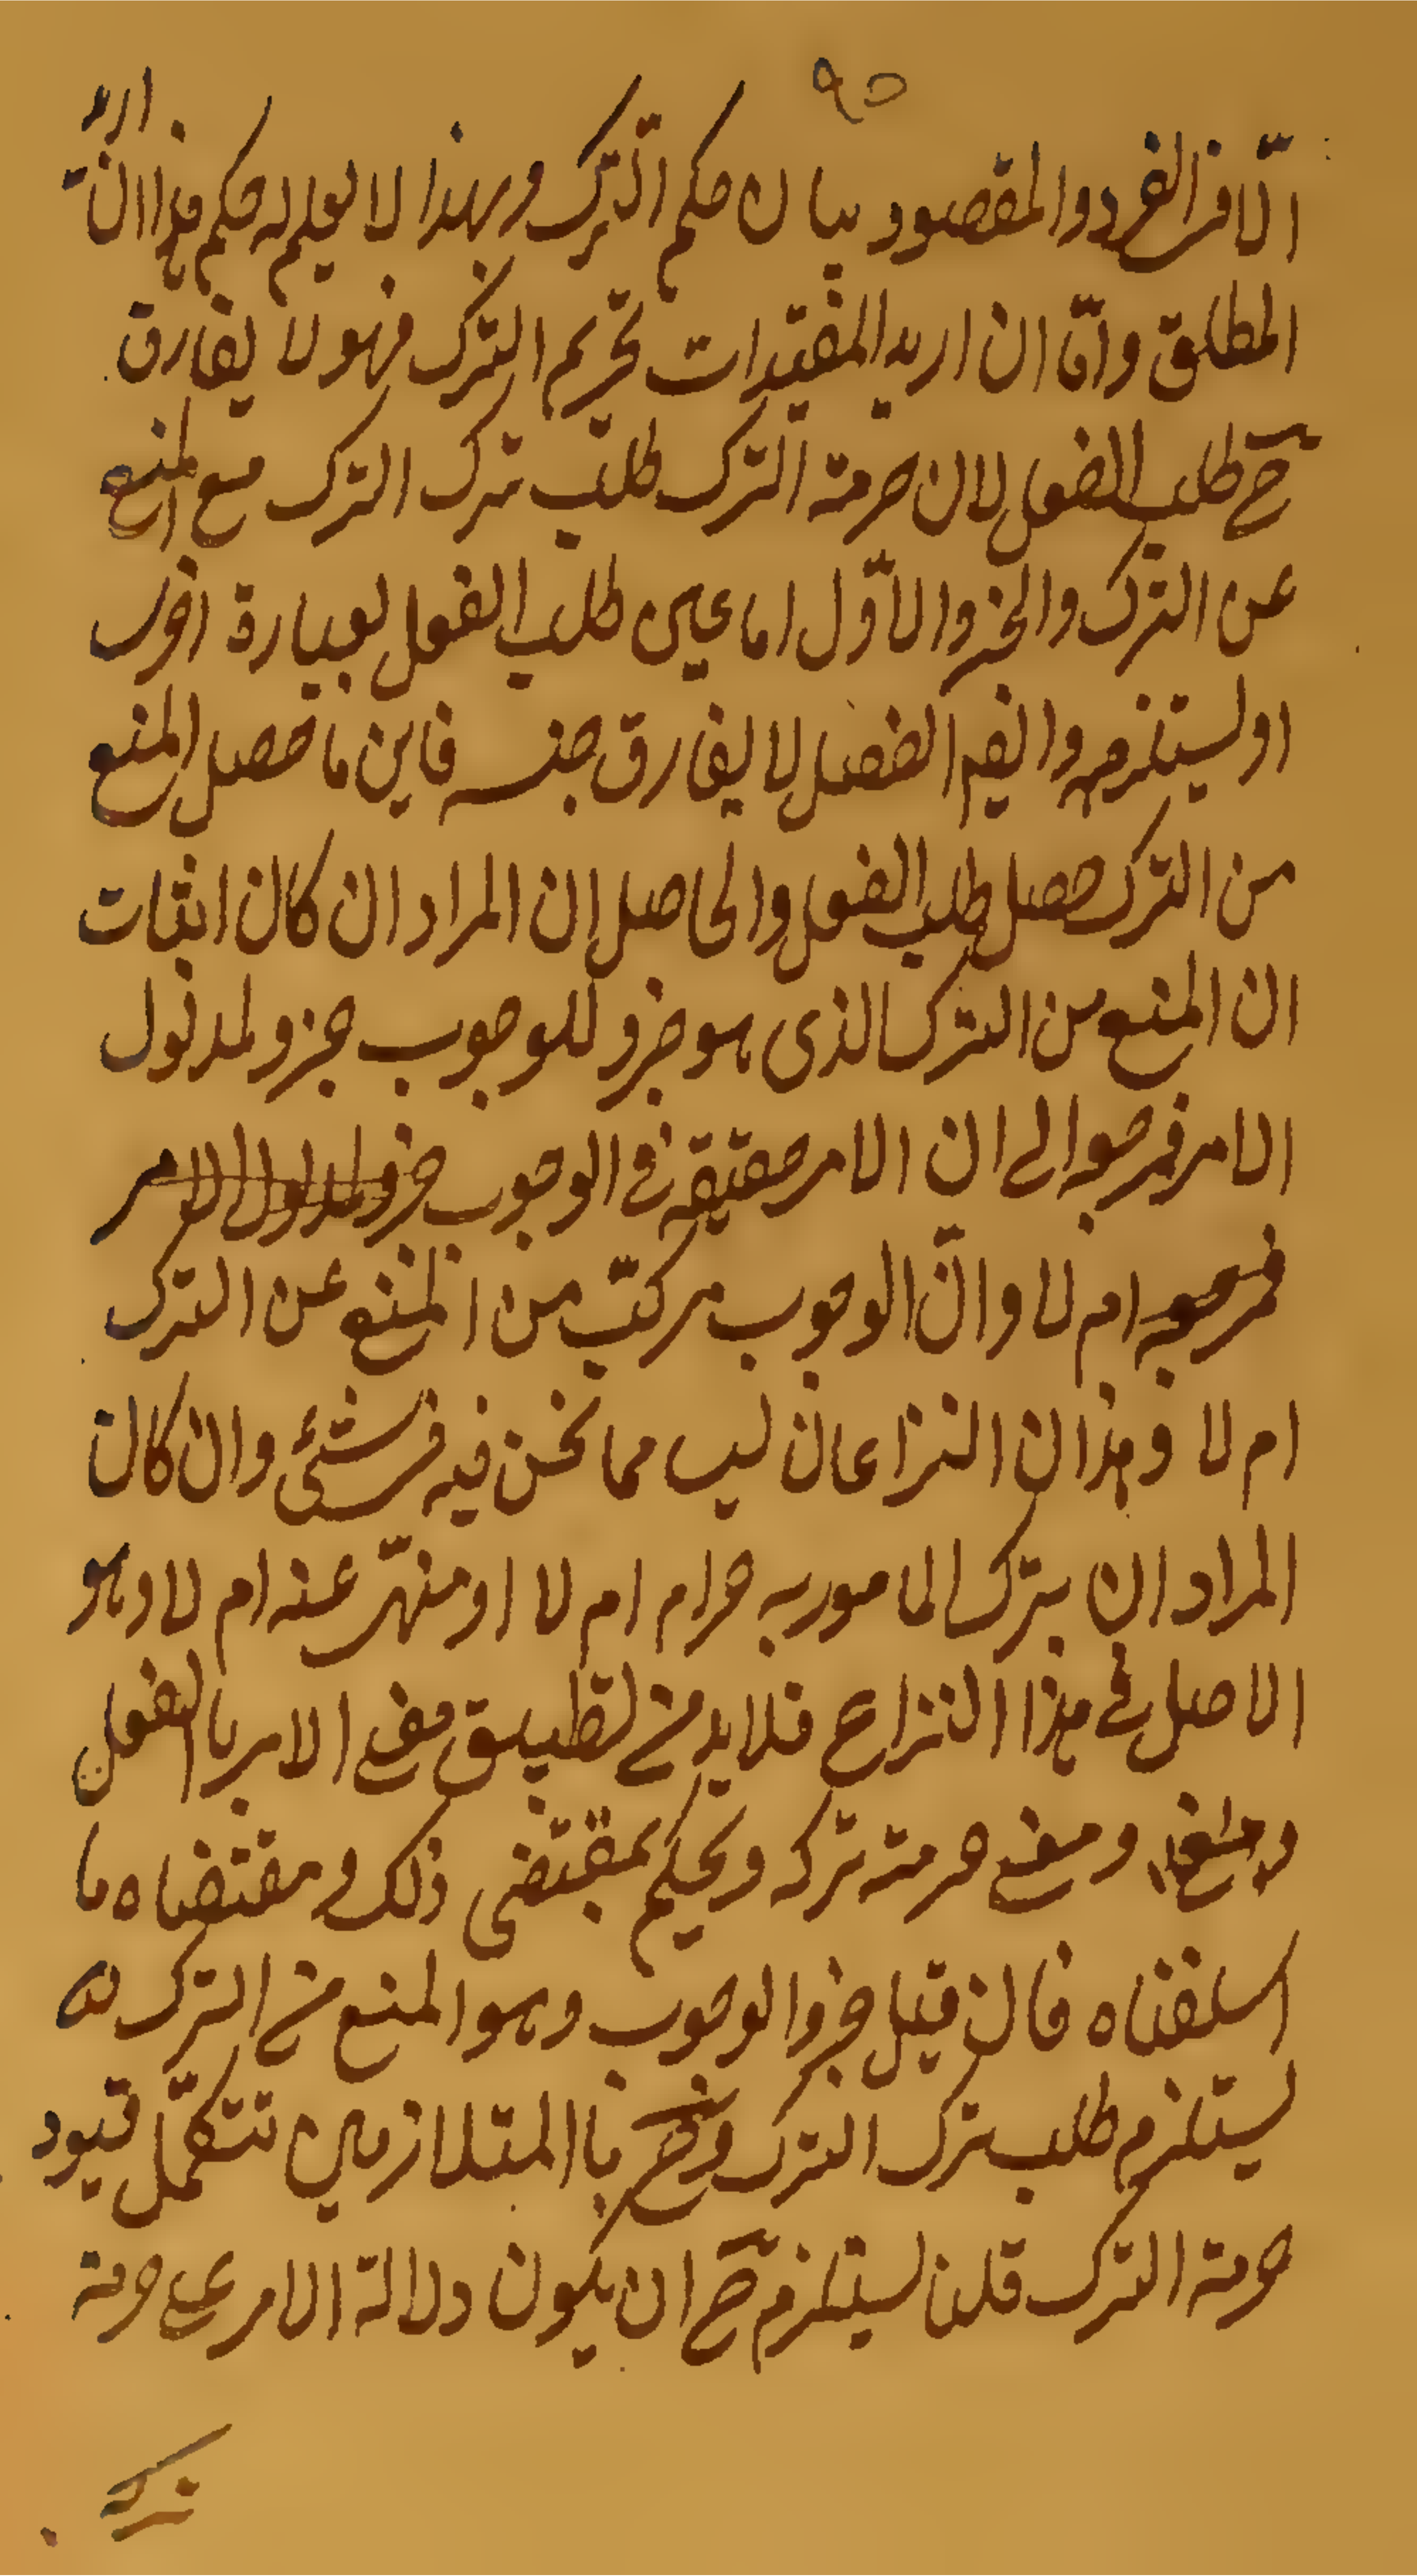 ٩٥
الّا فى الفرد والمقصود بيان حكم الترك وبهذا لا يعلم له حكم هذا ان اريد
المطلق وامّا ان اريد المقيّدات تحريم الترك فهو لا يفارق
ح طلب الفعل لان حرمة الترك طلب ترك الترك مع المنع
عن الترك والجزو الاوّل اما عين طلب الفعل بعبارة اخرى
او يستلزمه وايضا الفصل لا يفارق جنسه فاين ما حصل المنع
من الترك حصل طلب الفعل والحاصل ان المراد ان كان اثبات
ان المنع من الترك الذى هو جزو للوجوب جزو لمدلول
الامر فمرجعه الى ان الامر حقيقة فى الوجوب جزو لمدلول الامر
فمرجعه ام لا وانّ الوجوب مركّب من المنع عن الترك
ام لا وهذان النزاعان ليس مما نحن فيه فى شئ وان كان
المراد ان ترك المامور به حرام ام لا او منهىّ عنه ام لا وهو
الاصل فى هذا النزاع فلا بد من تطبيق معنى الامر بالفعل
ومعنى حرمة تركه ويحكم بمقتضى ذلك ومقتضاه ما
اسلفناه فان قيل جزو الوجوب وهو المنع من الترك
يستلزم طلب ترك الترك وح بالمتلازمين تتكمّل قيود
حرمة الترك قلنا يستلزم ح ان يكون دلالة الامر على حرمة
تركه